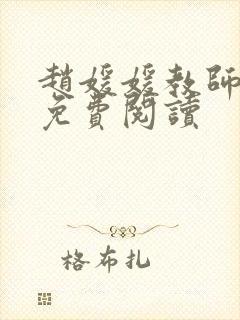 趙媛媛教師
免費閱讀
格布扎